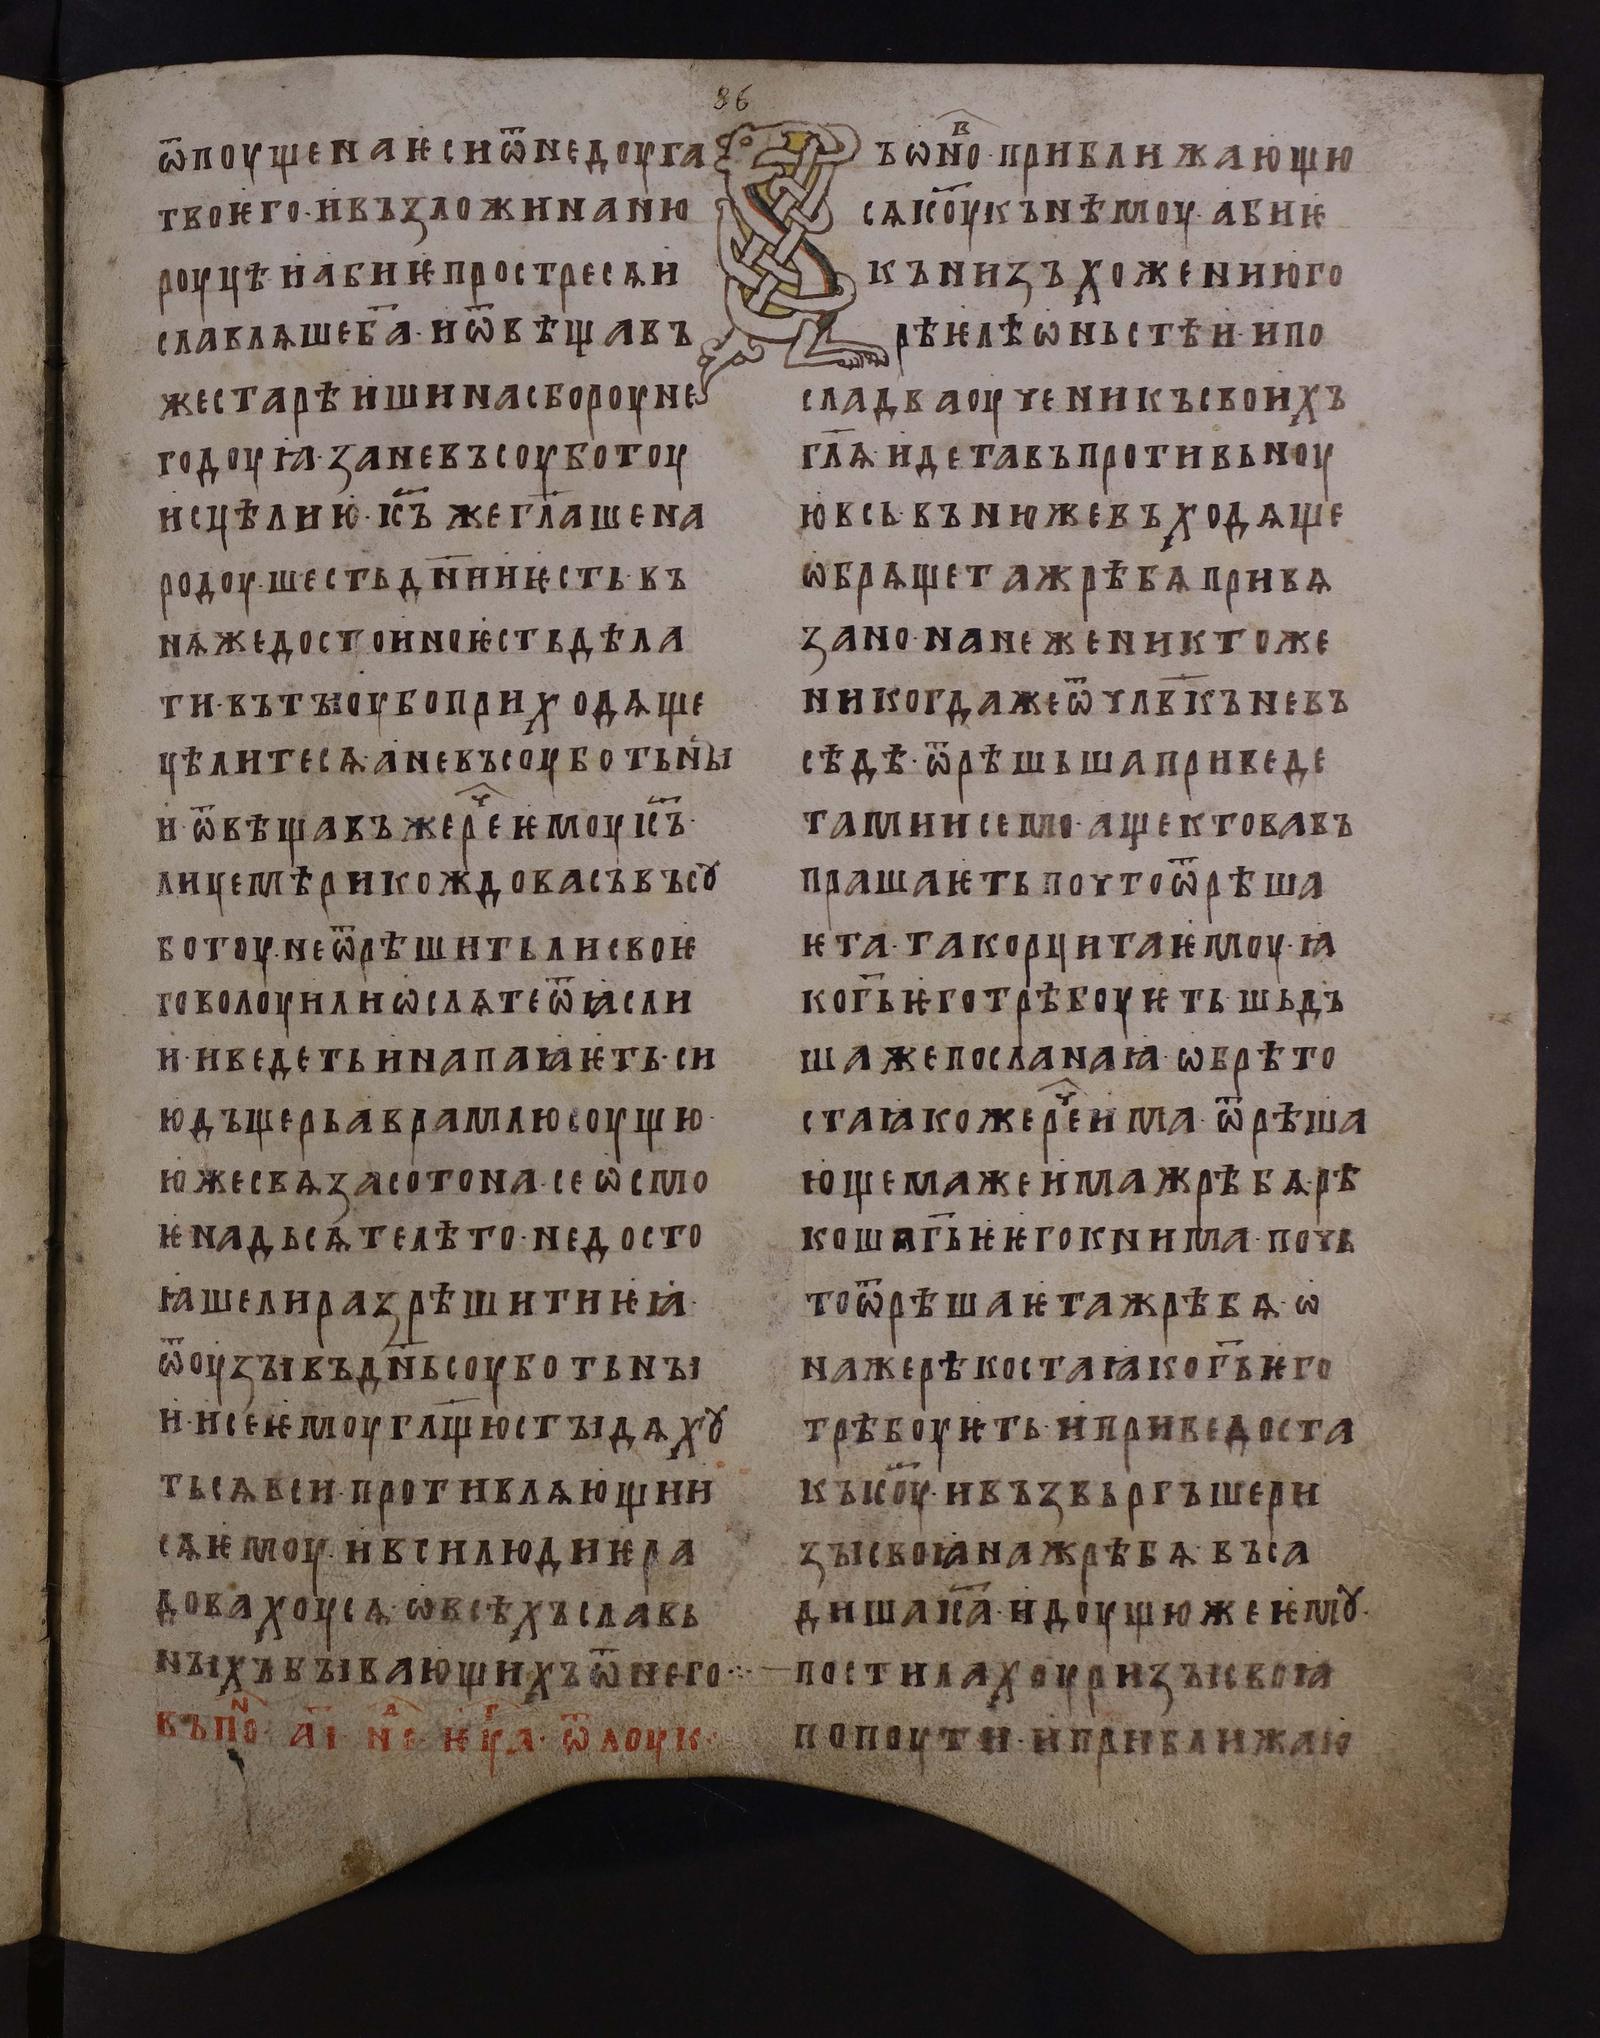 86
ѿпоущенаѥсиѿнедоуга
твоѥго·ивъзложинаню
роуцѣ·иабиѥпростресѧи
славлѧшеба҃·иѿвѣщавъ
жестарѣишинасбороуне
годоуꙗ·заневъсоуботоу
исцѣлию·іс҃ъжегл҃ашена
родоу·шестьдн҃ииѥсть·въ
нѧжедостоиноѥстьдѣла
ти·вътꙑоубоприходѧще
цѣлитесѧ·аневъсоуботьнꙑ
и·ѿвѣщавъжереч҇еѥмоуіс҃ъ·
лицемѣрикождовасъвъсꙋ
ботоу·неѿрѣшитьлисвоѥ
говолоуилиѡслѧтеѿꙗсли
и·иведетьинапаꙗѥть·си
юдъщерьаврамлюсоущю·
южесвѧзасотона·сеѡсмо
ѥнадьсѧтелѣто·недосто
ꙗшелиразрѣшитиѥꙗ·
ѿоузꙑвъдн҃ьсоуботьнꙑ
и·исеѥмоугл҃щюстꙑдѧхꙋ
тьсѧвси·противлѧющии
сѧѥмоу·ивсилюдиѥра
довахоусѧ·ѡвсѣхъславь
нꙑхъбꙑвающихъѿнего·:·
въпн҇о·а҃і·нд҇е·ѥуг҇а·ѿлоук·
Въѡнв҇о·приближающю
сѧіс҃оукънѣмоу·абиѥ
кънизъхожениюго
рѣѥлѣѡньстѣи·ипо
сладваоученикъсвоихъ
гл҃ѧ·идетавъпротивьноу
ювсь·въnюжевъходѧще
ѡбрѧщетажрѣбѧпривѧ
зано·нанежениктоже
никогдажеѿчлв҃къневъ
сѣдѣ·ѿрѣшьшаприведе
тамиисемо·ащектовавъ
прашаѥтьпочтоѿрѣша
ѥта·такорцитаѥмоу·ꙗ
когь҃ѥготрѣбоуѥть·шьдъ
шажепосланаꙗ·ѡбрѣто
стаꙗкожереч҇еима·ѿрѣша
ющемажеимажрѣбѧ·рѣ
кошагь҃ѥѥгокнима·почь
тоѿрѣшаѥтажрѣбѧ·ѡ
нажерѣкостаꙗкогь҃ѥго
трѣбоуѥть·иприведоста
къіс҃оу·ивъзвьргъшери
зꙑсвоꙗнажрѣбѧ·въса
дишаіс҃а·идоущюжеѥмꙋ·
постилахоуризꙑсвоꙗ
попоути·иприближаю